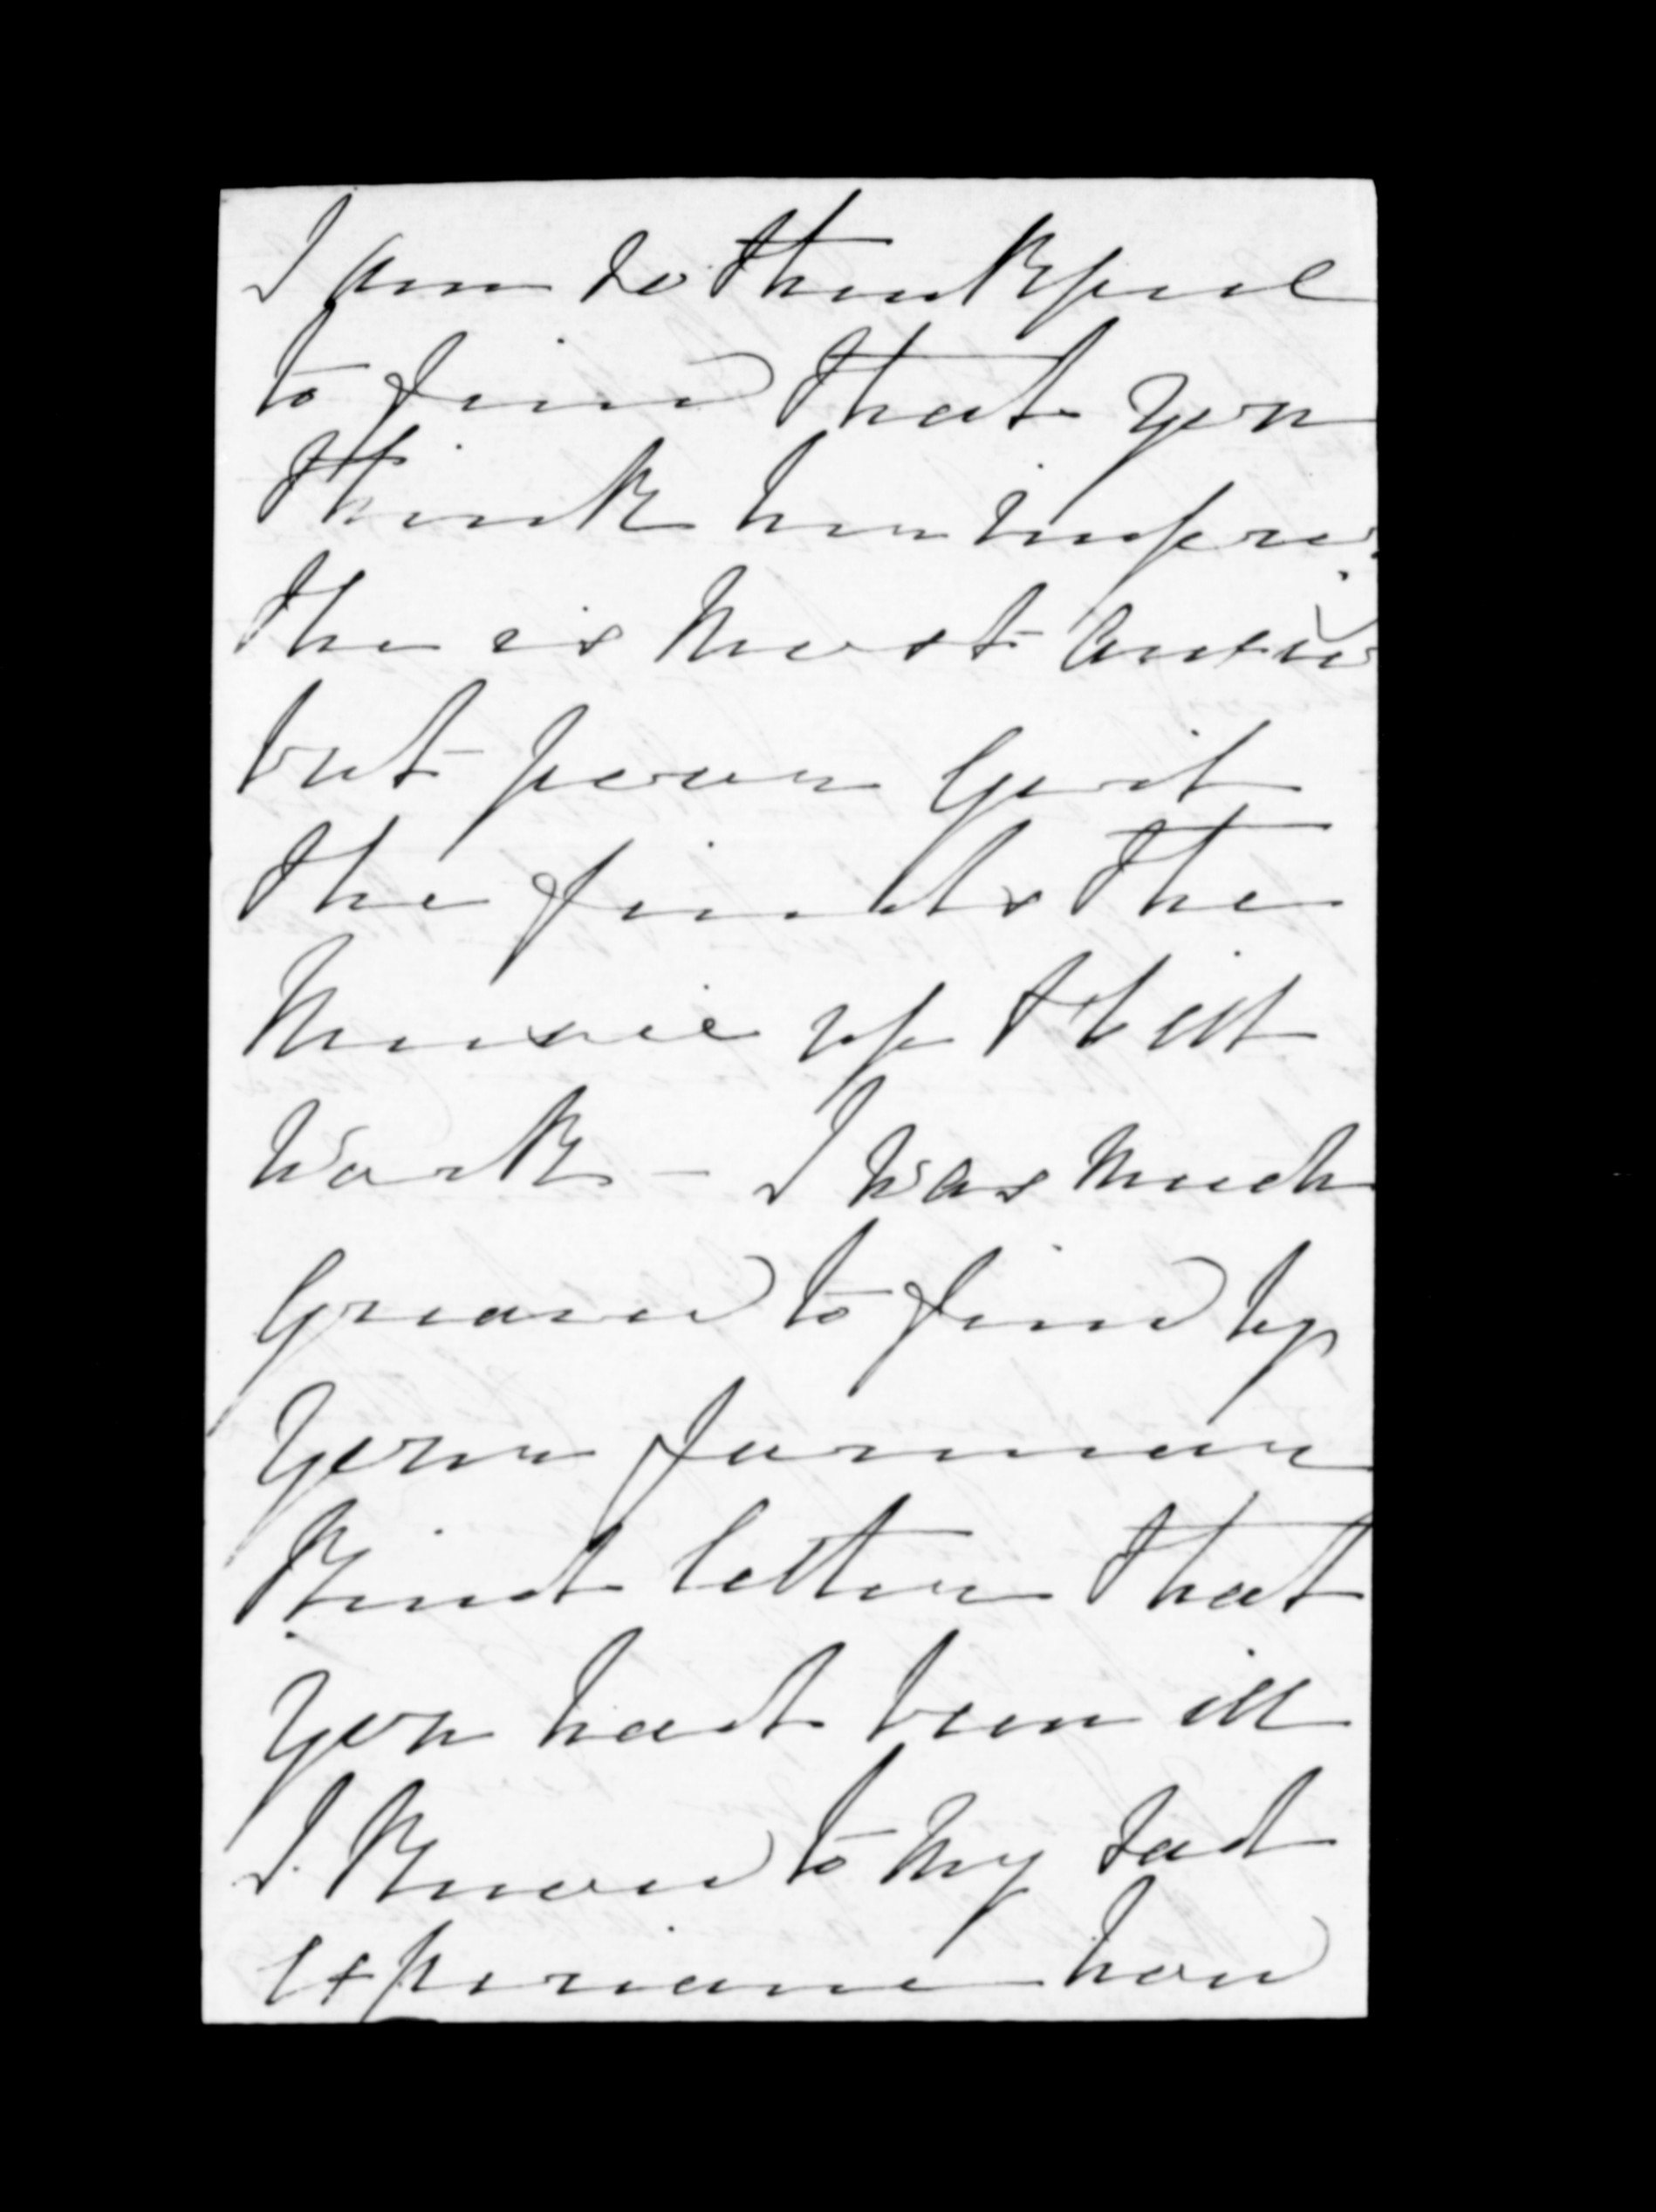 I am so thankful
to find that you
think her impro
She is most anxio
but poor Girl
She finds the
Music up still
Work - I was much
Grieved to find by
Your former
Kind letter that
you had been ill
I Know to my sad
experience how